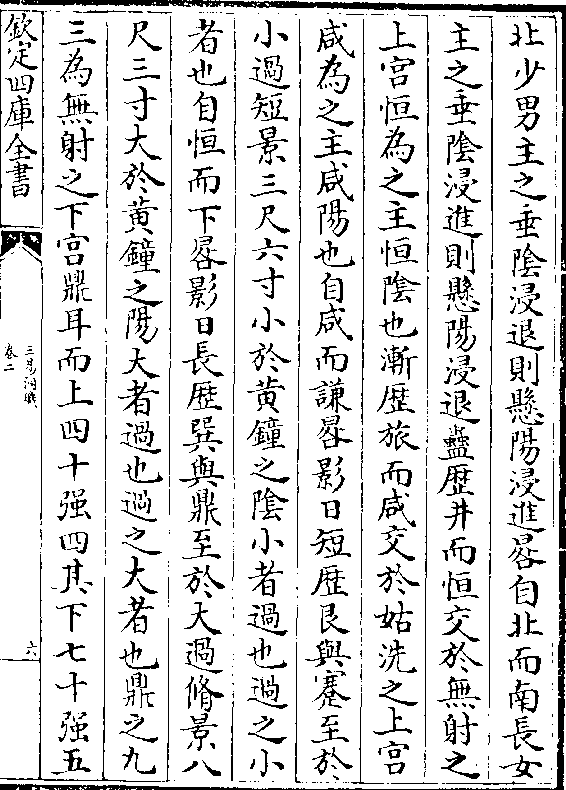 北少男主之垂陰浸退則懸陽浸進晷自北而南長女
主之垂陰浸進則懸陽浸退蠱歴井而恒交於無射之
上宫恒為之主恒陰也漸歴旅而咸交於姑洗之上宫
咸為之主咸陽也自咸而謙晷影日短歴艮與蹇至於
小過短景三尺六寸小於黄鐘之陰小者過也過之小
者也自恒而下晷影日長歴巽與鼎至於大過脩景八
尺三寸大於黄鐘之陽大者過也過之大者也鼎之九
三為無射之下宫鼎耳而上四十强四其下七十强五
欽定四庫全書
三易洞璣
卷二
六